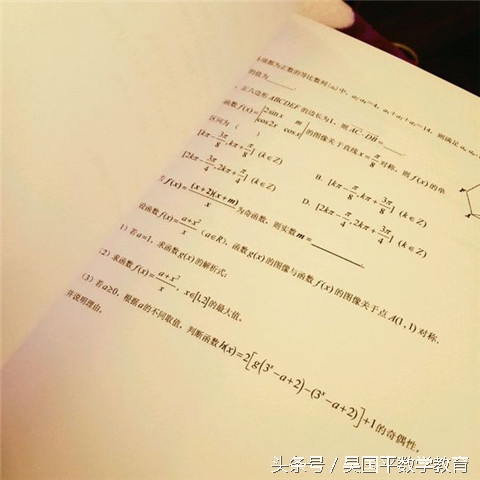 各项都为正数的等比数列{aₙ}中, a₁a₃=4, a₁+a₂+a₃=14, 则满足aₙ
的值为______.
正六边形ABCDEF的边长为1, 则 AC·DB=______.
函数f(x)=|2sinx m; cos2x cosx|的图像关于直线x=π/8对称, 则f(x)的单
区间为( )
[kπ-3π/8,kπ+π/8] (k∈Z) B. [kπ-π/8,kπ+3π/8] (k∈Z)
[2kπ-3π/4,2kπ+π/4] (k∈Z) D. [2kπ-π/4,2kπ+3π/4] (k∈Z)
若f(x)=(x+2)(x+m)/x为奇函数, 则实数m=______.
设函数f(x)=(a+x²)/x (a∈R), 函数g(x)的图像与函数f(x)的图像关于点A(1,1)对称.
1) 若a=1, 求函数g(x)的解析式;
(2) 求函数f(x)=(a+x²)/x, x∈[1,2]的最大值.
(3) 若a≥0, 根据a的不同取值, 判断函数h(x)=2[g(3ˣ-a+2)-(3ˣ-a+2)]+1的奇偶性,
并说明理由.
头条号 / 吴国平数学教育